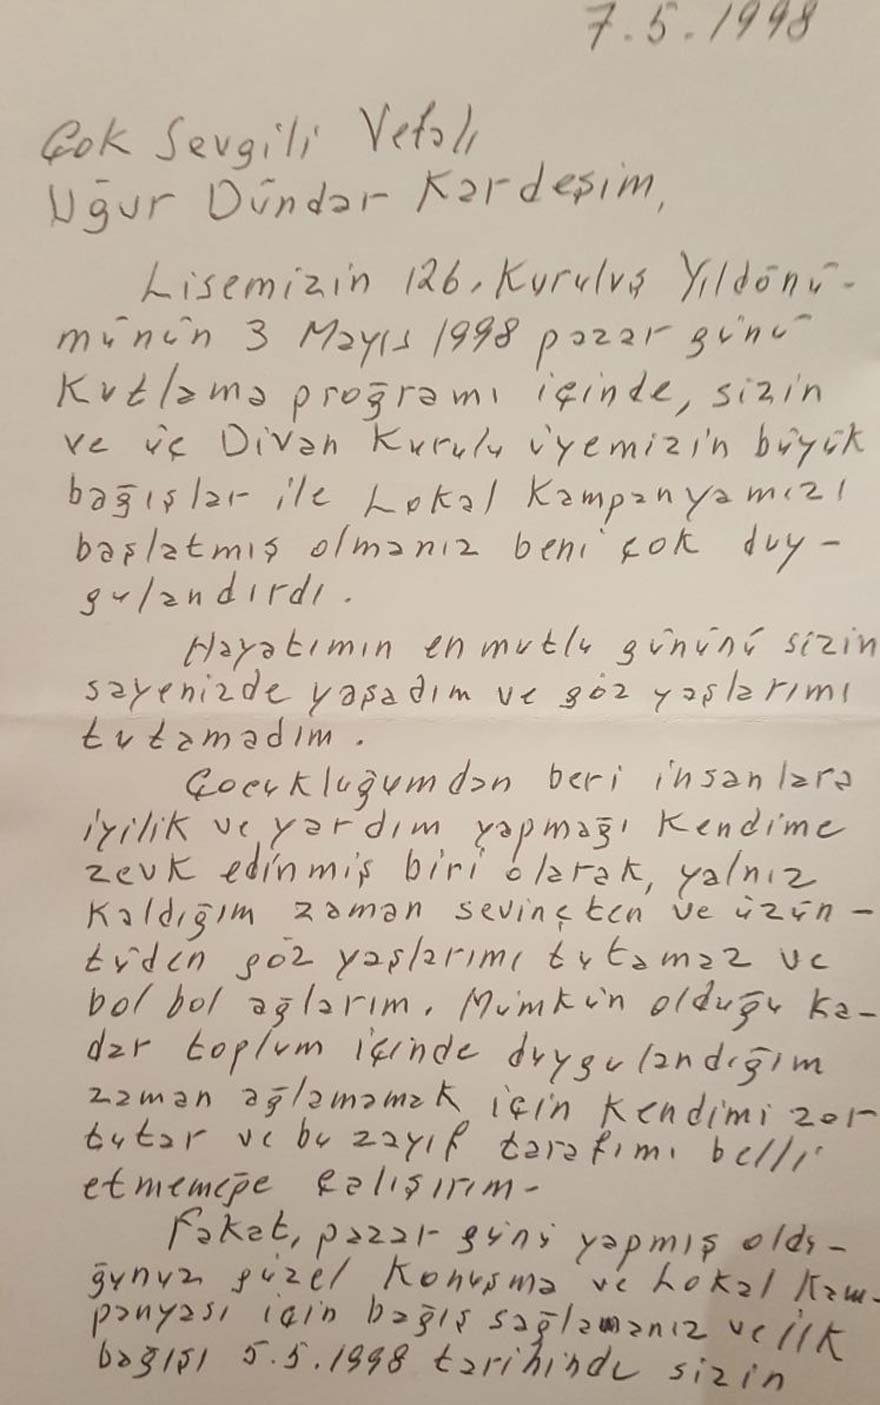 7.5.1998
Çok Sevgili Vefalı
Uğur Dündar Kardeşim,
Lisemizin 126. Kuruluş Yıldönü-
münün 3 Mayıs 1998 pazar günü
Kutlama proğramı içinde, sizin
ve üç Divan Kurulu üyemizin büyük
bağışlar ile Lokal Kampanyamızı
başlatmış olmanız beni çok duy-
gulandırdı.
Hayatımın en mutlu gününü sizin
sayenizde yaşadım ve göz yaşlarımı
tutamadım.
Çocukluğumdan beri insanlara
iyilik ve yardım yapmağı kendime
zevk edinmiş biri olarak, yalnız
kaldığım zaman sevinçten ve üzün-
tüden göz yaşlarımı tutamaz ve
bol bol ağlarım. Mümkün olduğu ka-
dar toplum içinde duygulandığım
zaman ağlamamak için kendimi zor
tutar ve bu zayıf tarafımı belli
etmemeğe çalışırım.
Fakat, pazar günü yapmış oldu-
ğunuz güzel konuşma ve Lokal Kam-
panyası için bağış sağlamanız ve ilk
bağışı 5.5.1998 tarihinde sizin